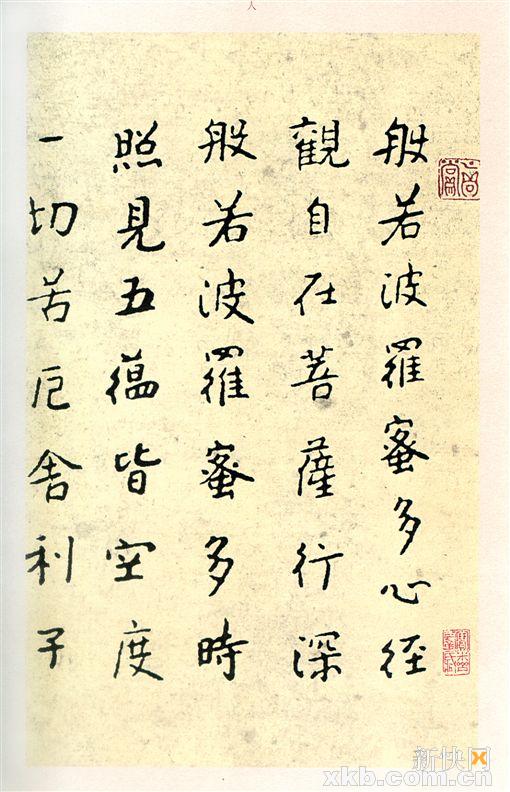 般若波羅蜜多心経
觀自在菩薩行深
般若波羅蜜多時
照見五蘊皆空度
一切苦厄舍利子
新快网
xkb.com.cn